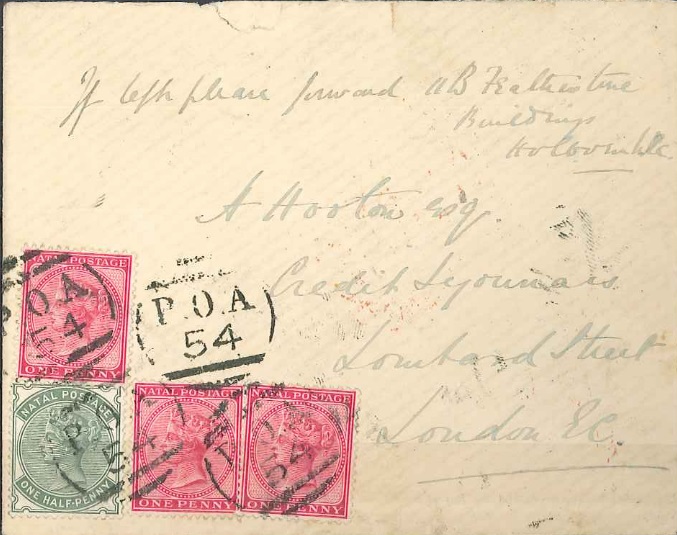 If left please forward 11B Featherstone
Buildings
Holborn
A Hooton Esq.
Credit Lyonnais
Lombard Street
London E.C.
NATAL POSTAGE
P.O.A
54
ONE PENNY
P.O.A
54
NATAL POSTAGE
ONE HALF-PENNY
P
54
NATAL POSTAGE
ONE PENNY
NATAL POSTAGE
ONE PENNY
P.O.A
54